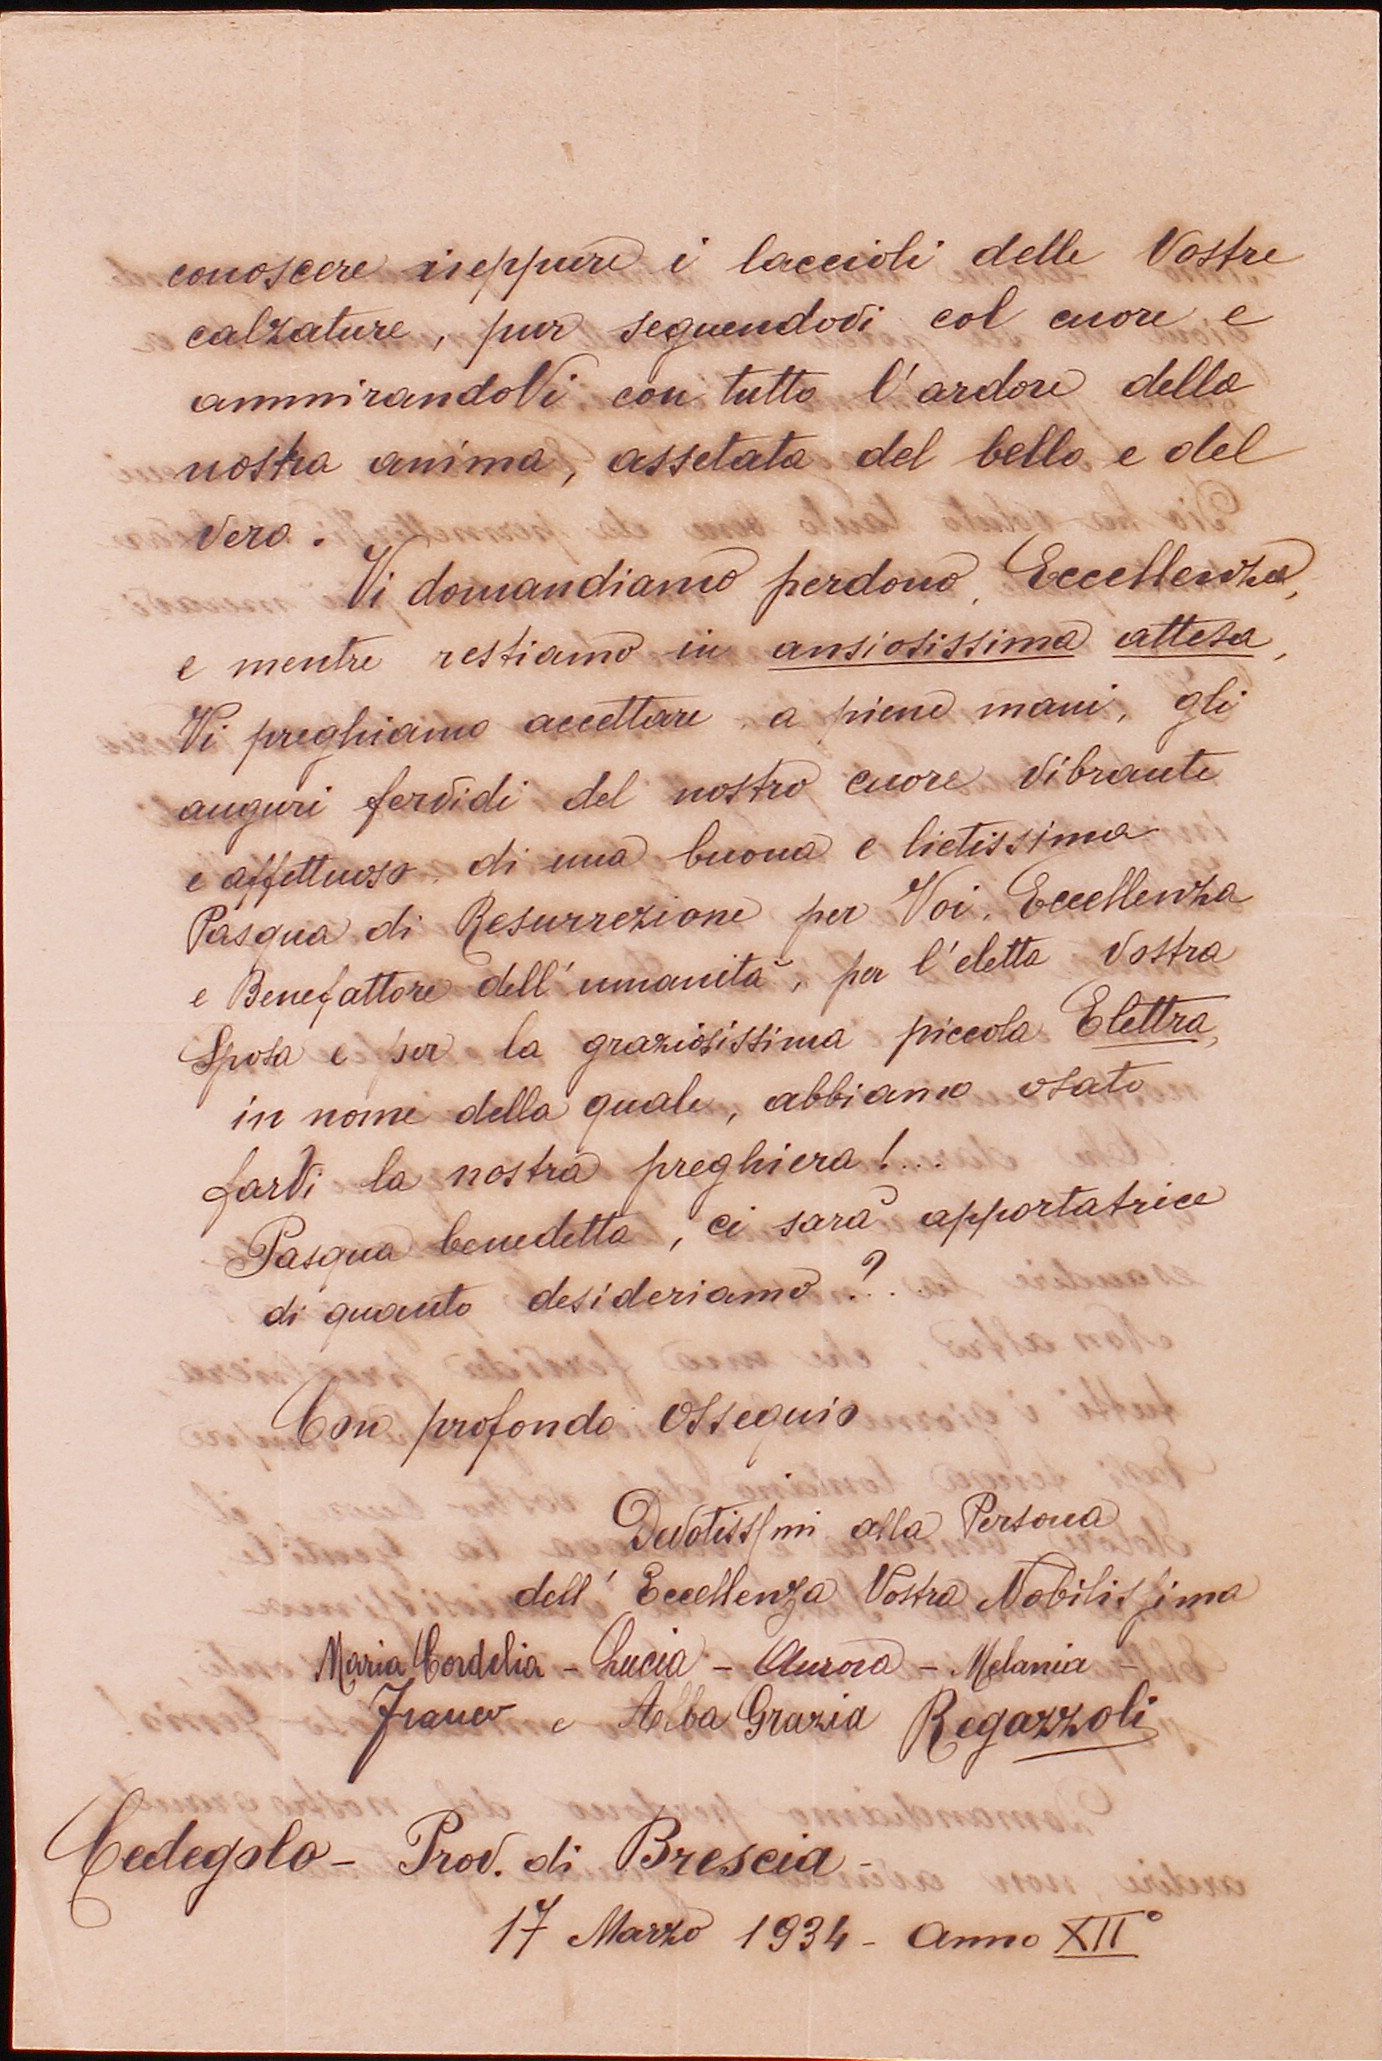 conoscere neppure i laccioli delle Vostre
calzature, pur seguendovi col cuore e
ammirandoVi con tutto l'ardore della
nostra anima, assetata del bello e del
vero.
Vi domandiamo perdono, Eccellenza,
e mentre restiamo in ansiosissima attesa,
Vi preghiamo accettare a piene mani, gli
auguri fervidi del nostro cuore vibrante
e affettuoso di una buona e lietissima
Pasqua di Resurrezione per Voi, Eccellenza
e Benefattore dell'umanità, per l'eletta Vostra
Sposa e per la graziosissima piccola Elettra,
in nome della quale, abbiamo osato
farVi la nostra preghiera!...
Pasqua benedetta, ci sarà apportatrice
di quanto desideriamo?...
Con profondo ossequio
Devotissimi alla Persona
dell'Eccellenza Vostra Nobilissima
Maria Cordelia - Lucia - Aurora - Melania -
Franco e Alba Grazia Regazzoli
Cedegolo - Prov. di Brescia -
17 Marzo 1934 - Anno XII°